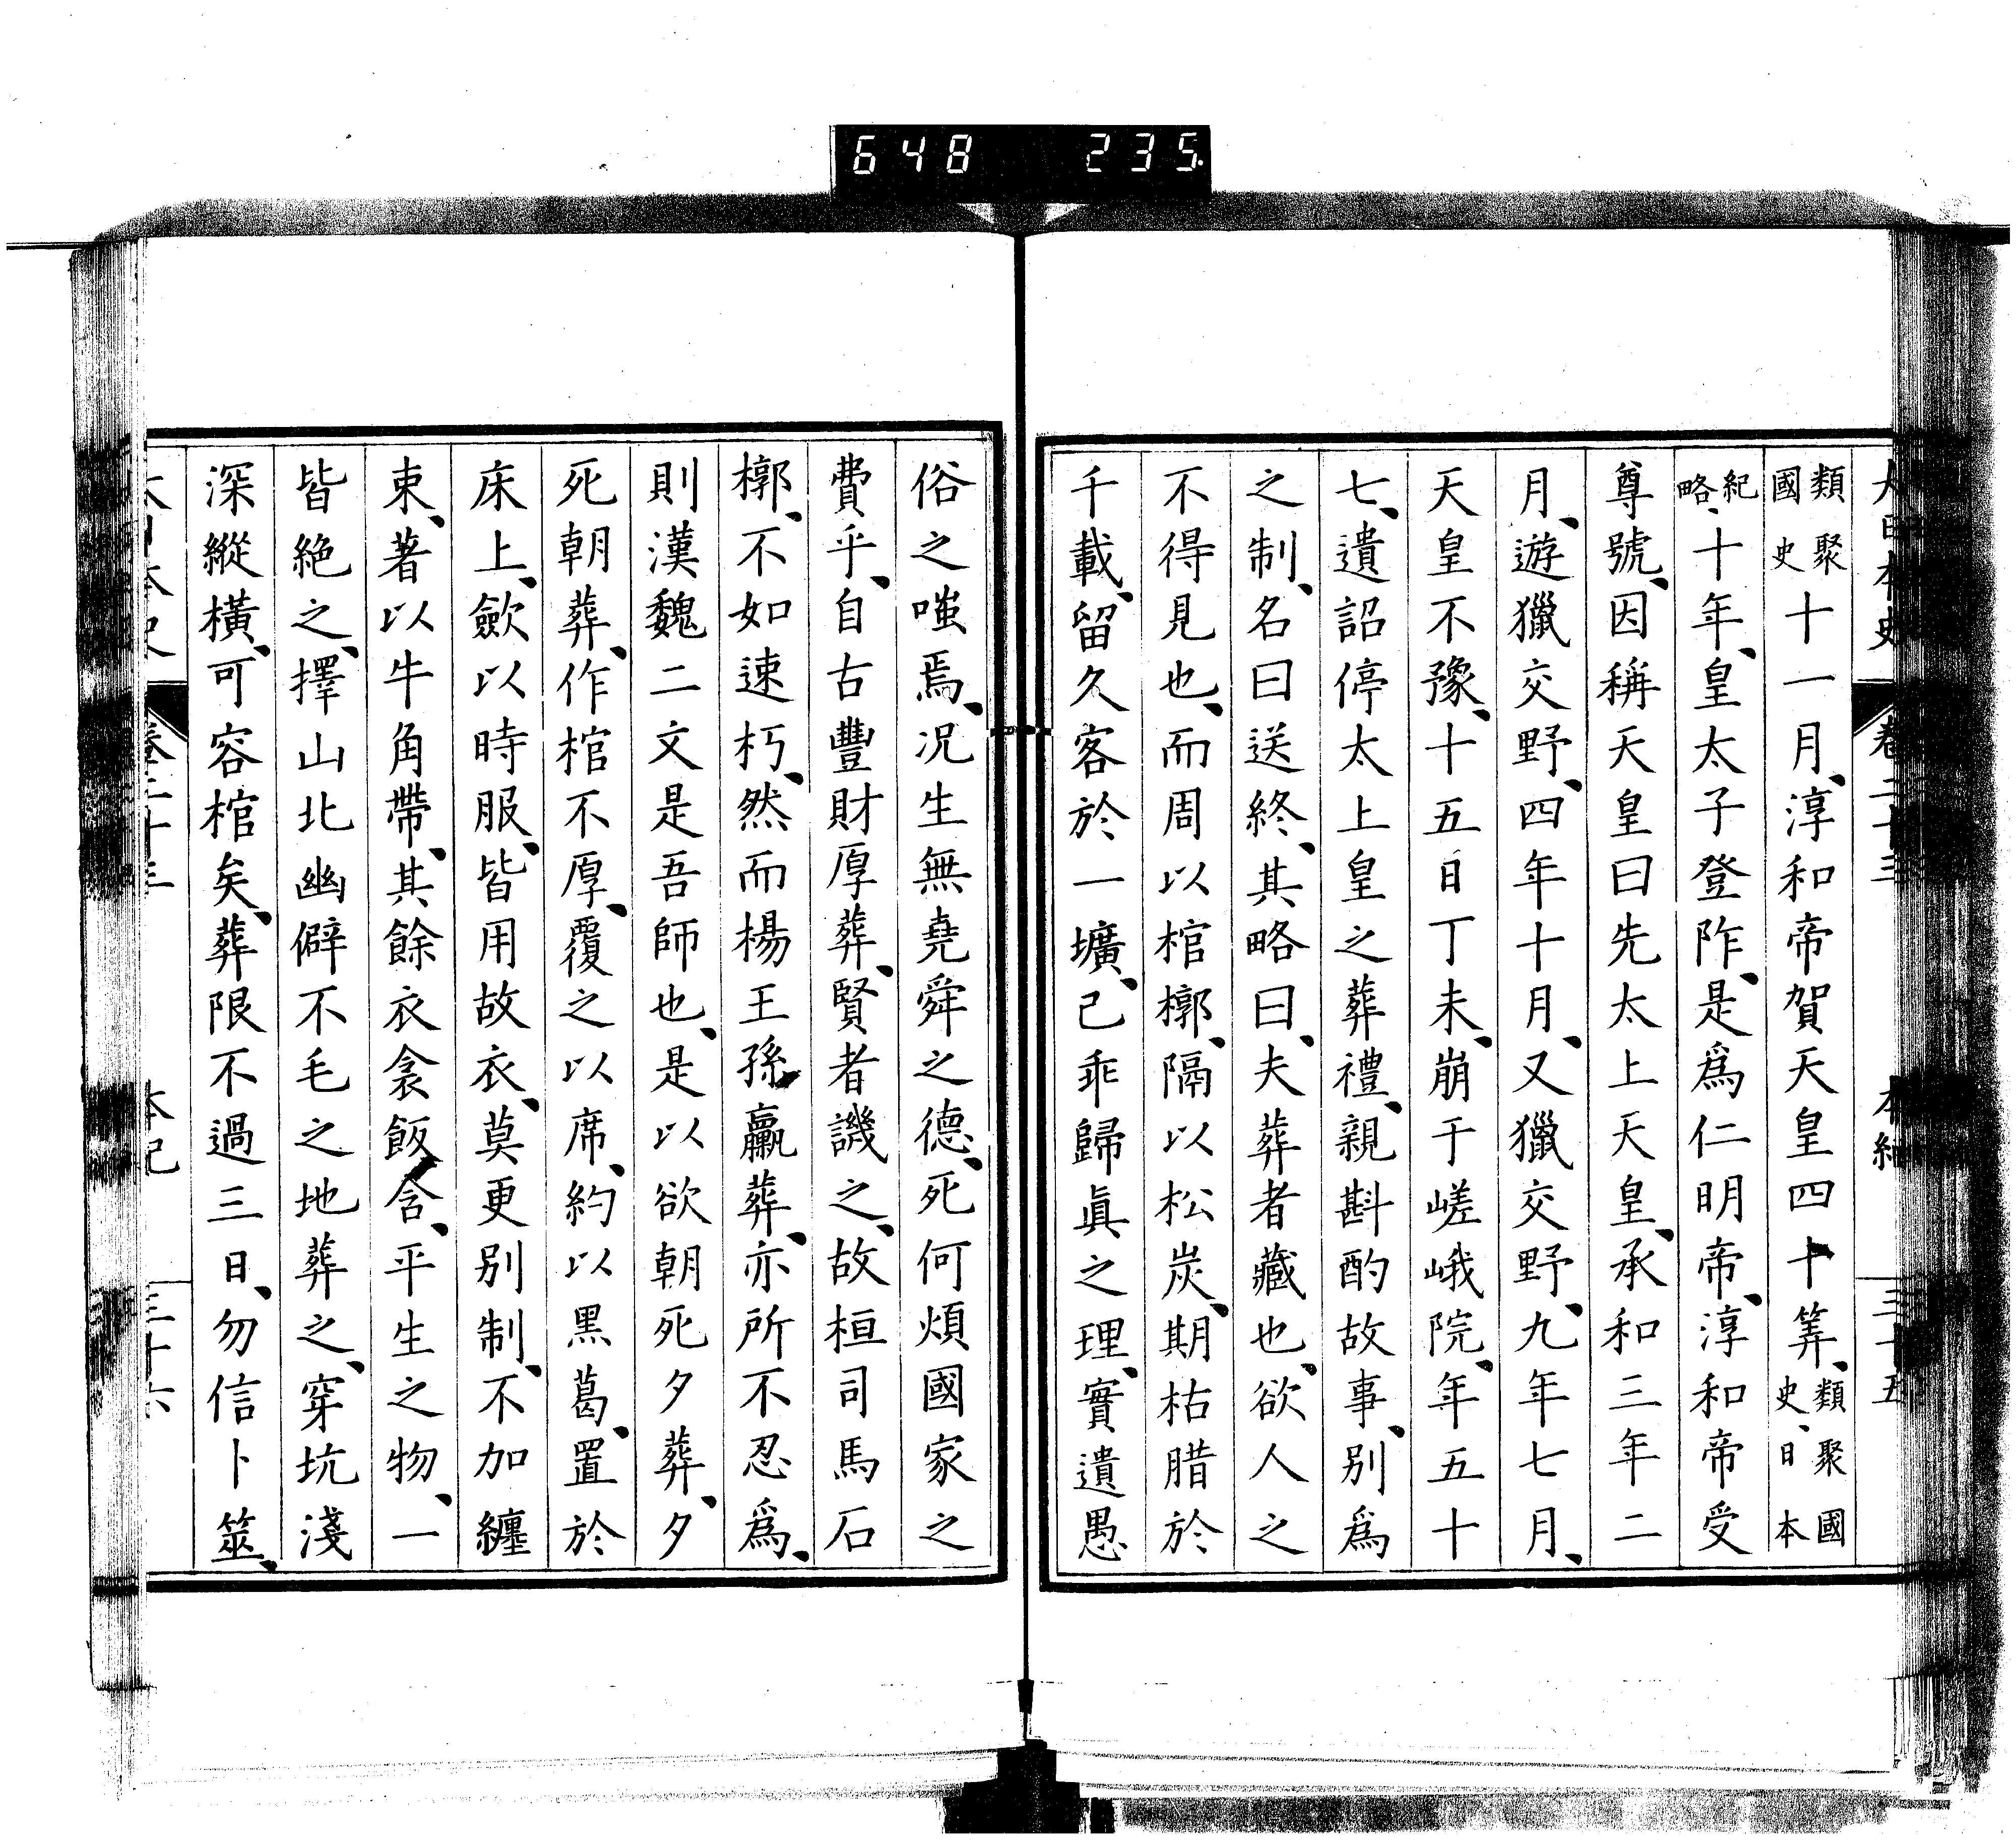 648 235
大日本史 卷二十三 本紀 三十五
類聚國史十一月、淳和帝賀天皇四十筭、類聚國史、日本
紀略、十年、皇太子登阼、是爲仁明帝、淳和帝受
尊號、因稱天皇曰先太上天皇、承和三年二
月、遊獵交野、四年十月、又獵交野、九年七月、
天皇不豫、十五日丁未、崩于嵯峨院、年五十
七、遺詔停太上皇之葬禮、親斟酌故事、別爲
之制、名曰送終、其略曰、夫葬者藏也、欲人之
不得見也、而周以棺槨、隔以松炭、期枯腊於
千載、留久客於一壙、己乖歸眞之理、實遺愚
俗之嗤焉、况生無堯舜之德、死何煩國家之
費乎、自古豐財厚葬、賢者譏之、故桓司馬石
槨、不如速朽、然而楊王孫臝葬、亦所不忍爲、
則漢魏二文是吾師也、是以欲朝死夕葬、夕
死朝葬、作棺不厚、覆之以席、約以黑葛、置於
床上、歛以時服、皆用故衣、莫更別制、不加纏
束、著以牛角帶、其餘衣衾飯含、平生之物、一
皆絶之、擇山北幽僻不毛之地葬之、穿坑淺
深縱橫、可容棺矣、葬限不過三日、勿信卜筮、
大日本史 卷二十三 本紀 三十六